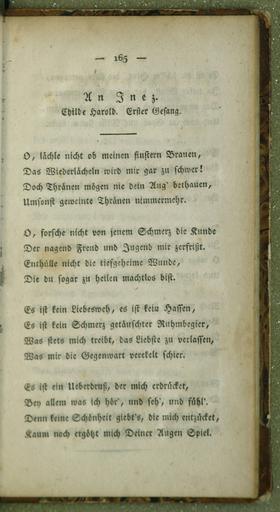 — 165 —
An Inez.
Childe Harold. Erster Gesang.
O, lächle nicht ob meinen finstern Brauen,
Das Wiederlächeln wird mir gar zu schwer!
Doch Thränen mögen nie dein Aug' bethauen,
Umsonst geweinte Thränen nimmermehr.
O, forsche nicht von jenem Schmerz die Kunde
Der nagend Freud und Jugend mir zerfrißt.
Enthülle nicht die tiefgeheime Wunde,
Die du sogar zu heilen machtlos bist.
Es ist kein Liebesweh, es ist kein Hassen,
Es ist kein Schmerz getäuschter Ruhmbegier,
Was stets mich treibt, das Liebste zu verlassen,
Was mir die Gegenwart verekelt schier.
Es ist ein Ueberdruß, der mich erdrücket,
Bey allem was ich hör', und seh', und fühl'.
Denn keine Schönheit giebt's, die mich entzücket,
Kaum noch ergötzt mich Deiner Augen Spiel.